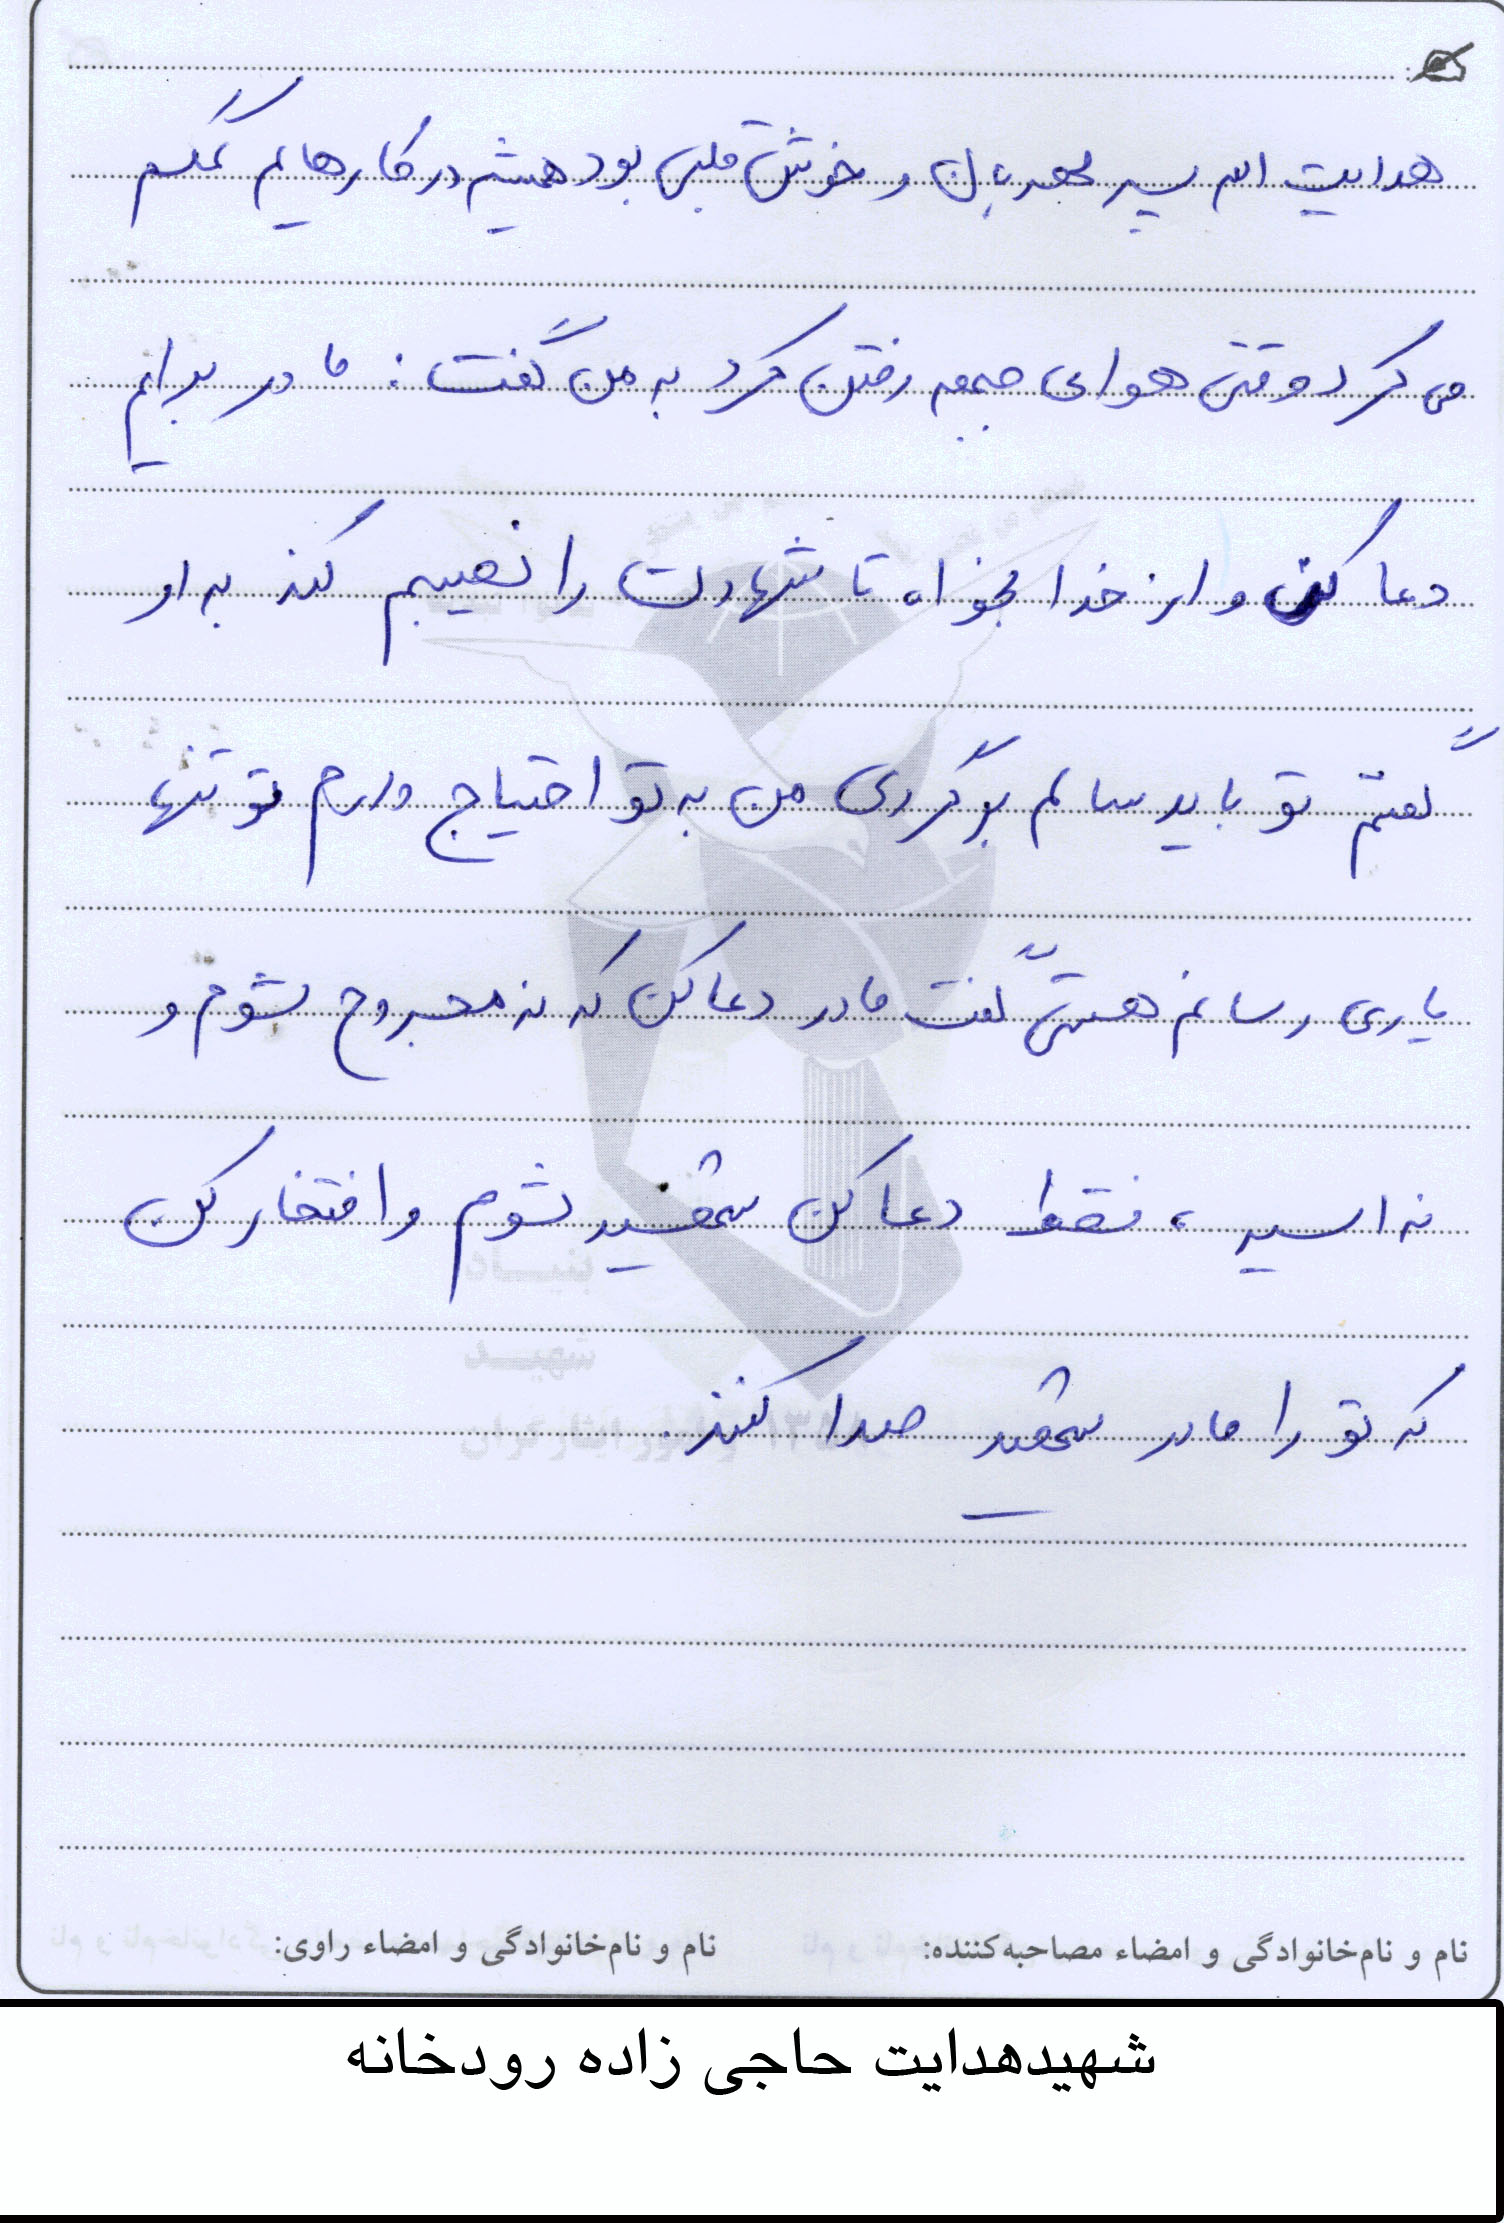 هدایت الله پسر مهربان و خوش قلبی بود همیشه در کارهایم کمکم
می کرد وقتی هوای جبهه رفتن کرد به من گفت : مادر برایم
دعا کن و از خدا بخواه تا شهادت را نصیبم کند به او
گفتم تو باید سالم برگردی من به تو احتیاج دارم تو تنها
یاری رسانم هستی گفت مادر دعا کن که نه مجروح شوم و
نه اسیر ، فقط دعا کن شهید شوم و افتخار کن
که تو را مادر شهید صدا کنند .
نام و نام‌خانوادگی و امضاء مصاحبه‌کننده: نام و نام‌خانوادگی و امضاء راوی:
شهیدهدایت حاجی زاده رودخانه